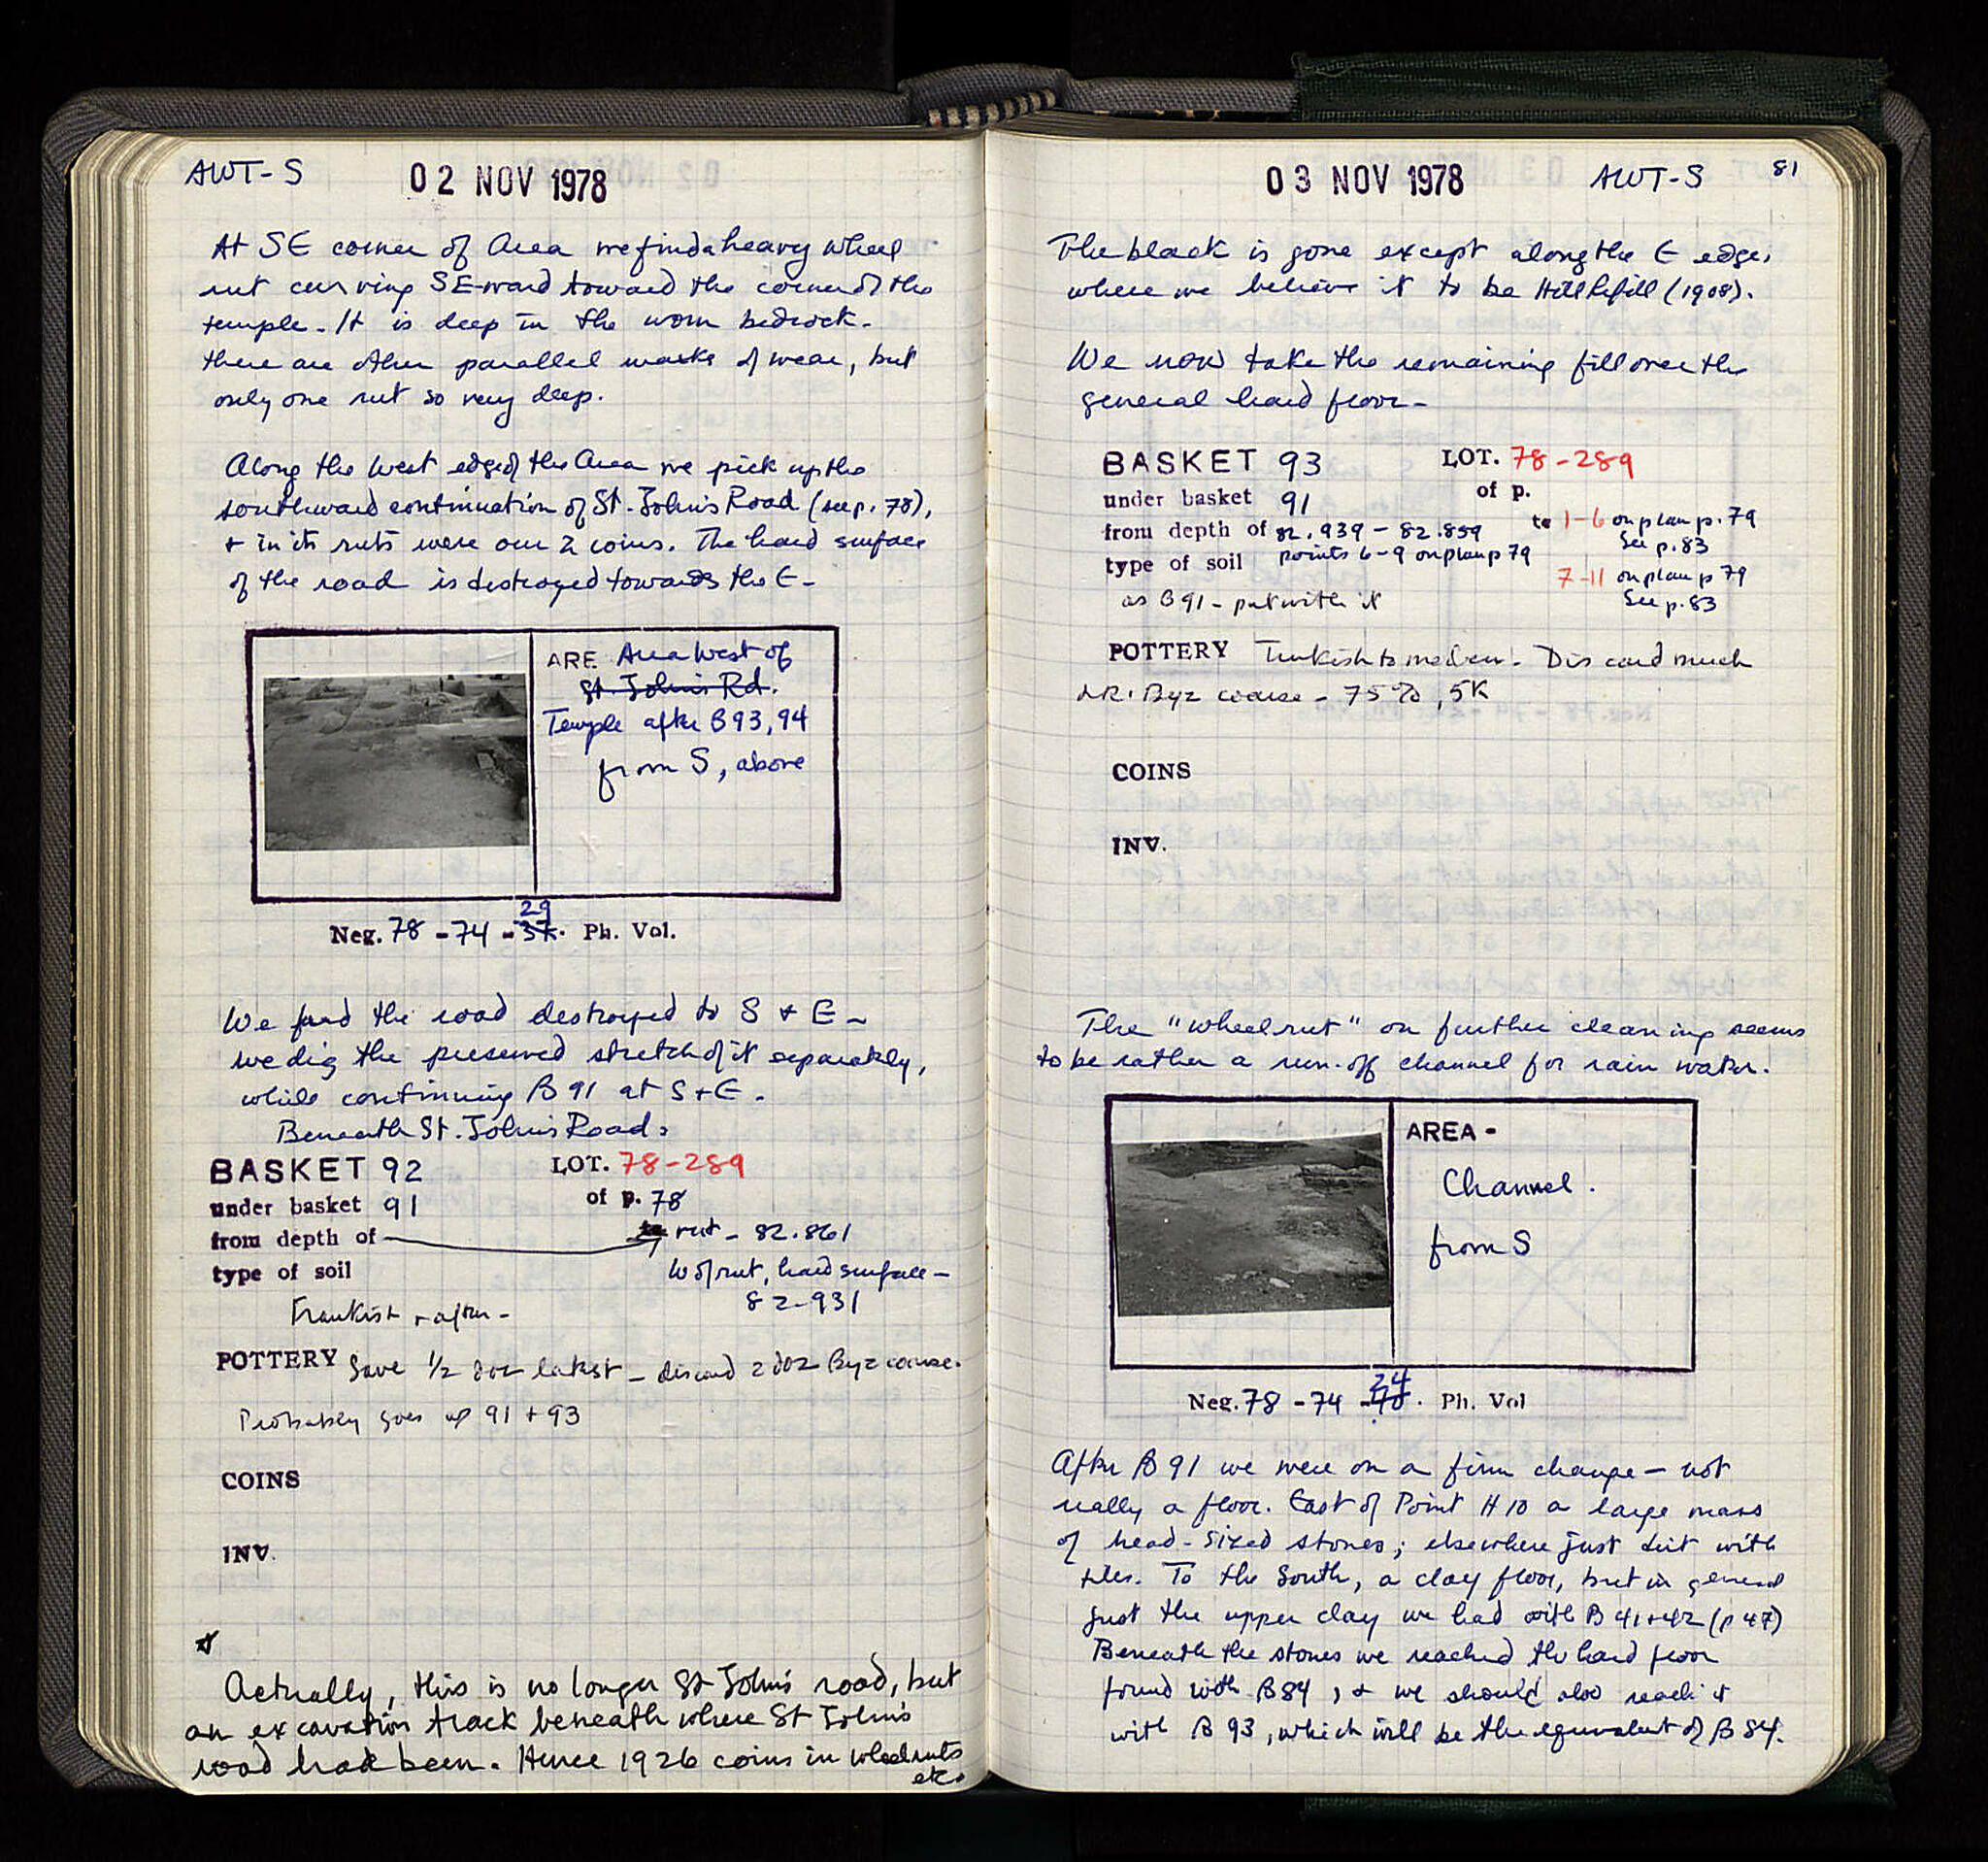 AWT-S
02 NOV 1978
At SE corner of Area we find a heavy wheel
rut curving SE-ward toward the corner of the
temple. It is deep in the worn bedrock.
there are other parallel marks of wear, but
only one rut so very deep.
Along the West edge of the Area we pick up the
southward continuation of St. John's Road (see p. 78),
+ in its ruts were our 2 coins. The hard surface
of the road is destroyed towards the E-
ARE Area West of
St. John's Rd.
Temple after B93, 94
from S, above
29
Neg. 78 - 74 - 37. Ph. Vol.
We find the road destroyed to S + E -
we dig the preserved stretch of it separately,
while continuing B 91 at S + E.
Beneath St. John's Road:
BASKET 92 LOT. 78-289
under basket 91 of p. 78
from depth of to rut - 82.861
type of soil W of rut, hard surface -
82.931
Frankish + after -
POTTERY Save 1/2 doz latest - discard 2 doz Byz coarse.
Probably goes w 91 + 93
COINS
INV.
Actually, this is no longer St John's road, but
an excavation track beneath where St John's
road had been. Hence 1926 coins in wheelruts
etc.
03 NOV 1978 AWT-S 81
The black is gone except along the E edge,
where we believe it to be Hill Refill (1908).
We now take the remaining fill over the
general hard floor-
BASKET 93 LOT. 78-289
under basket 91 of p.
from depth of 82.939 - 82.859 to 1-6 on plan p. 79
See p. 83
type of soil points 6-9 on plan p 79
7-11 on plan p 79
as B 91 - put with it See p. 83
POTTERY Turkish to modern. Discard much
LR: Byz coarse - 75%, 5K
COINS
INV.
The "wheelrut" on further cleaning seems
to be rather a run-off channel for rain water.
AREA -
Channel.
from S
24
Neg. 78 - 74 - 40. Ph. Vol
After B 91 we were on a firm change - not
really a floor. East of Point H 10 a large mass
of head-sized stones; elsewhere just dirt with
tiles. To the South, a clay floor, but in general
just the upper clay we had with B 41+42 (p 47)
Beneath the stones we reached the hard floor
found with B84, + we should also reach it
with B 93, which will be the equivalent of B 84.